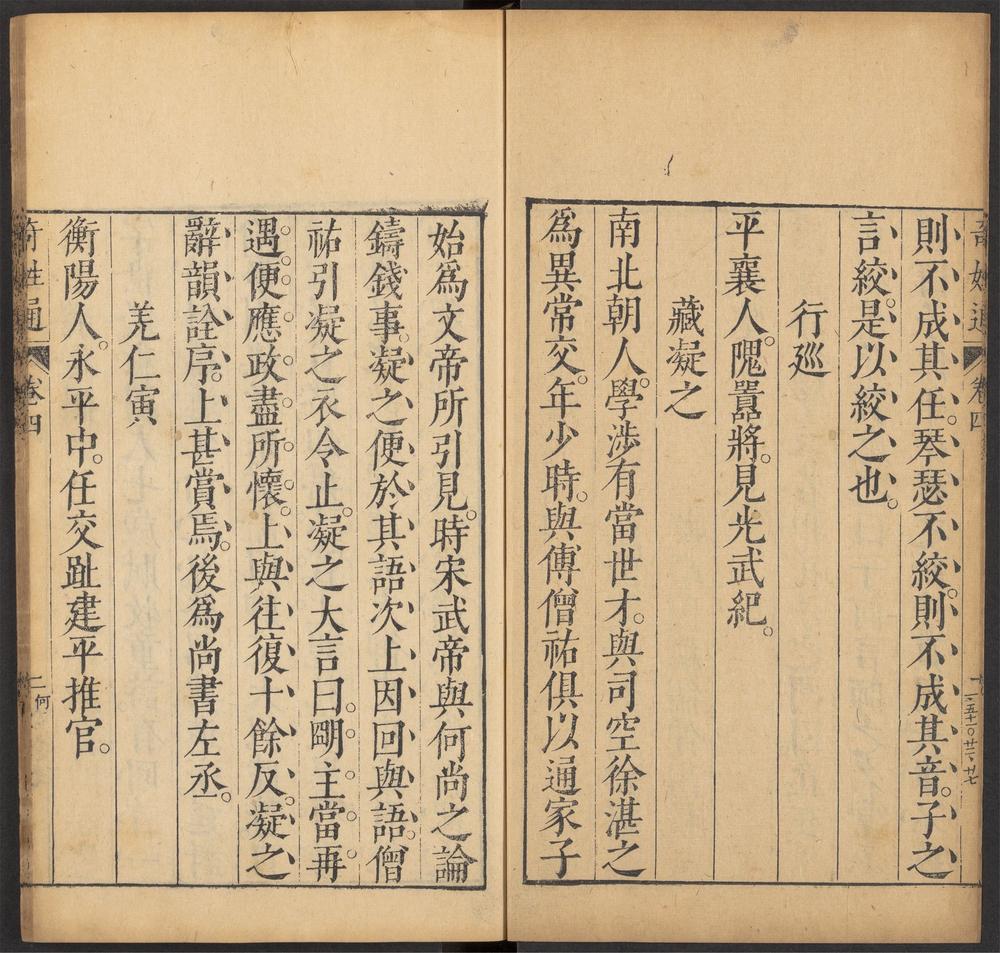 奇姓通
卷四
則不成其任琴瑟不絞則不成其音子之
言絞是以絞之也
行廵
平襄人隗囂將見光武紀
藏凝之
南北朝人學涉有當世才與司空徐湛之
爲異常交年少時與傅僧祐俱以通家子
始爲文帝所引見時宋武帝與何尚之論
鑄錢事凝之便於其語次上因回與語僧
祐引凝之衣令止凝之大言曰朙主當再
遇便應政盡所懷上與往復十餘反凝之
辭韻詮序上甚賞焉後爲尚書左丞
羌仁寅
衡陽人永平中任交趾建平推官
奇姓通
卷四